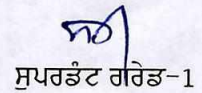 ਸੁਪਰਡੰਟ ਗਰੇਡ-1